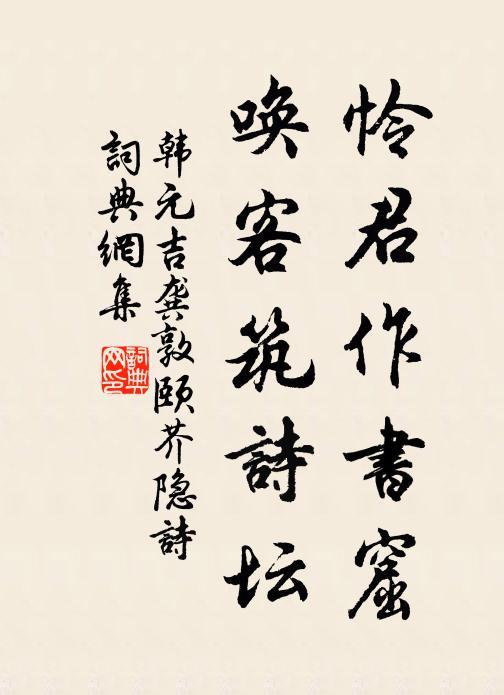 怜君作書窟
唤客筑詩坛
韩元吉龚敦颐芥隐詩
詞典網集
詞典网印